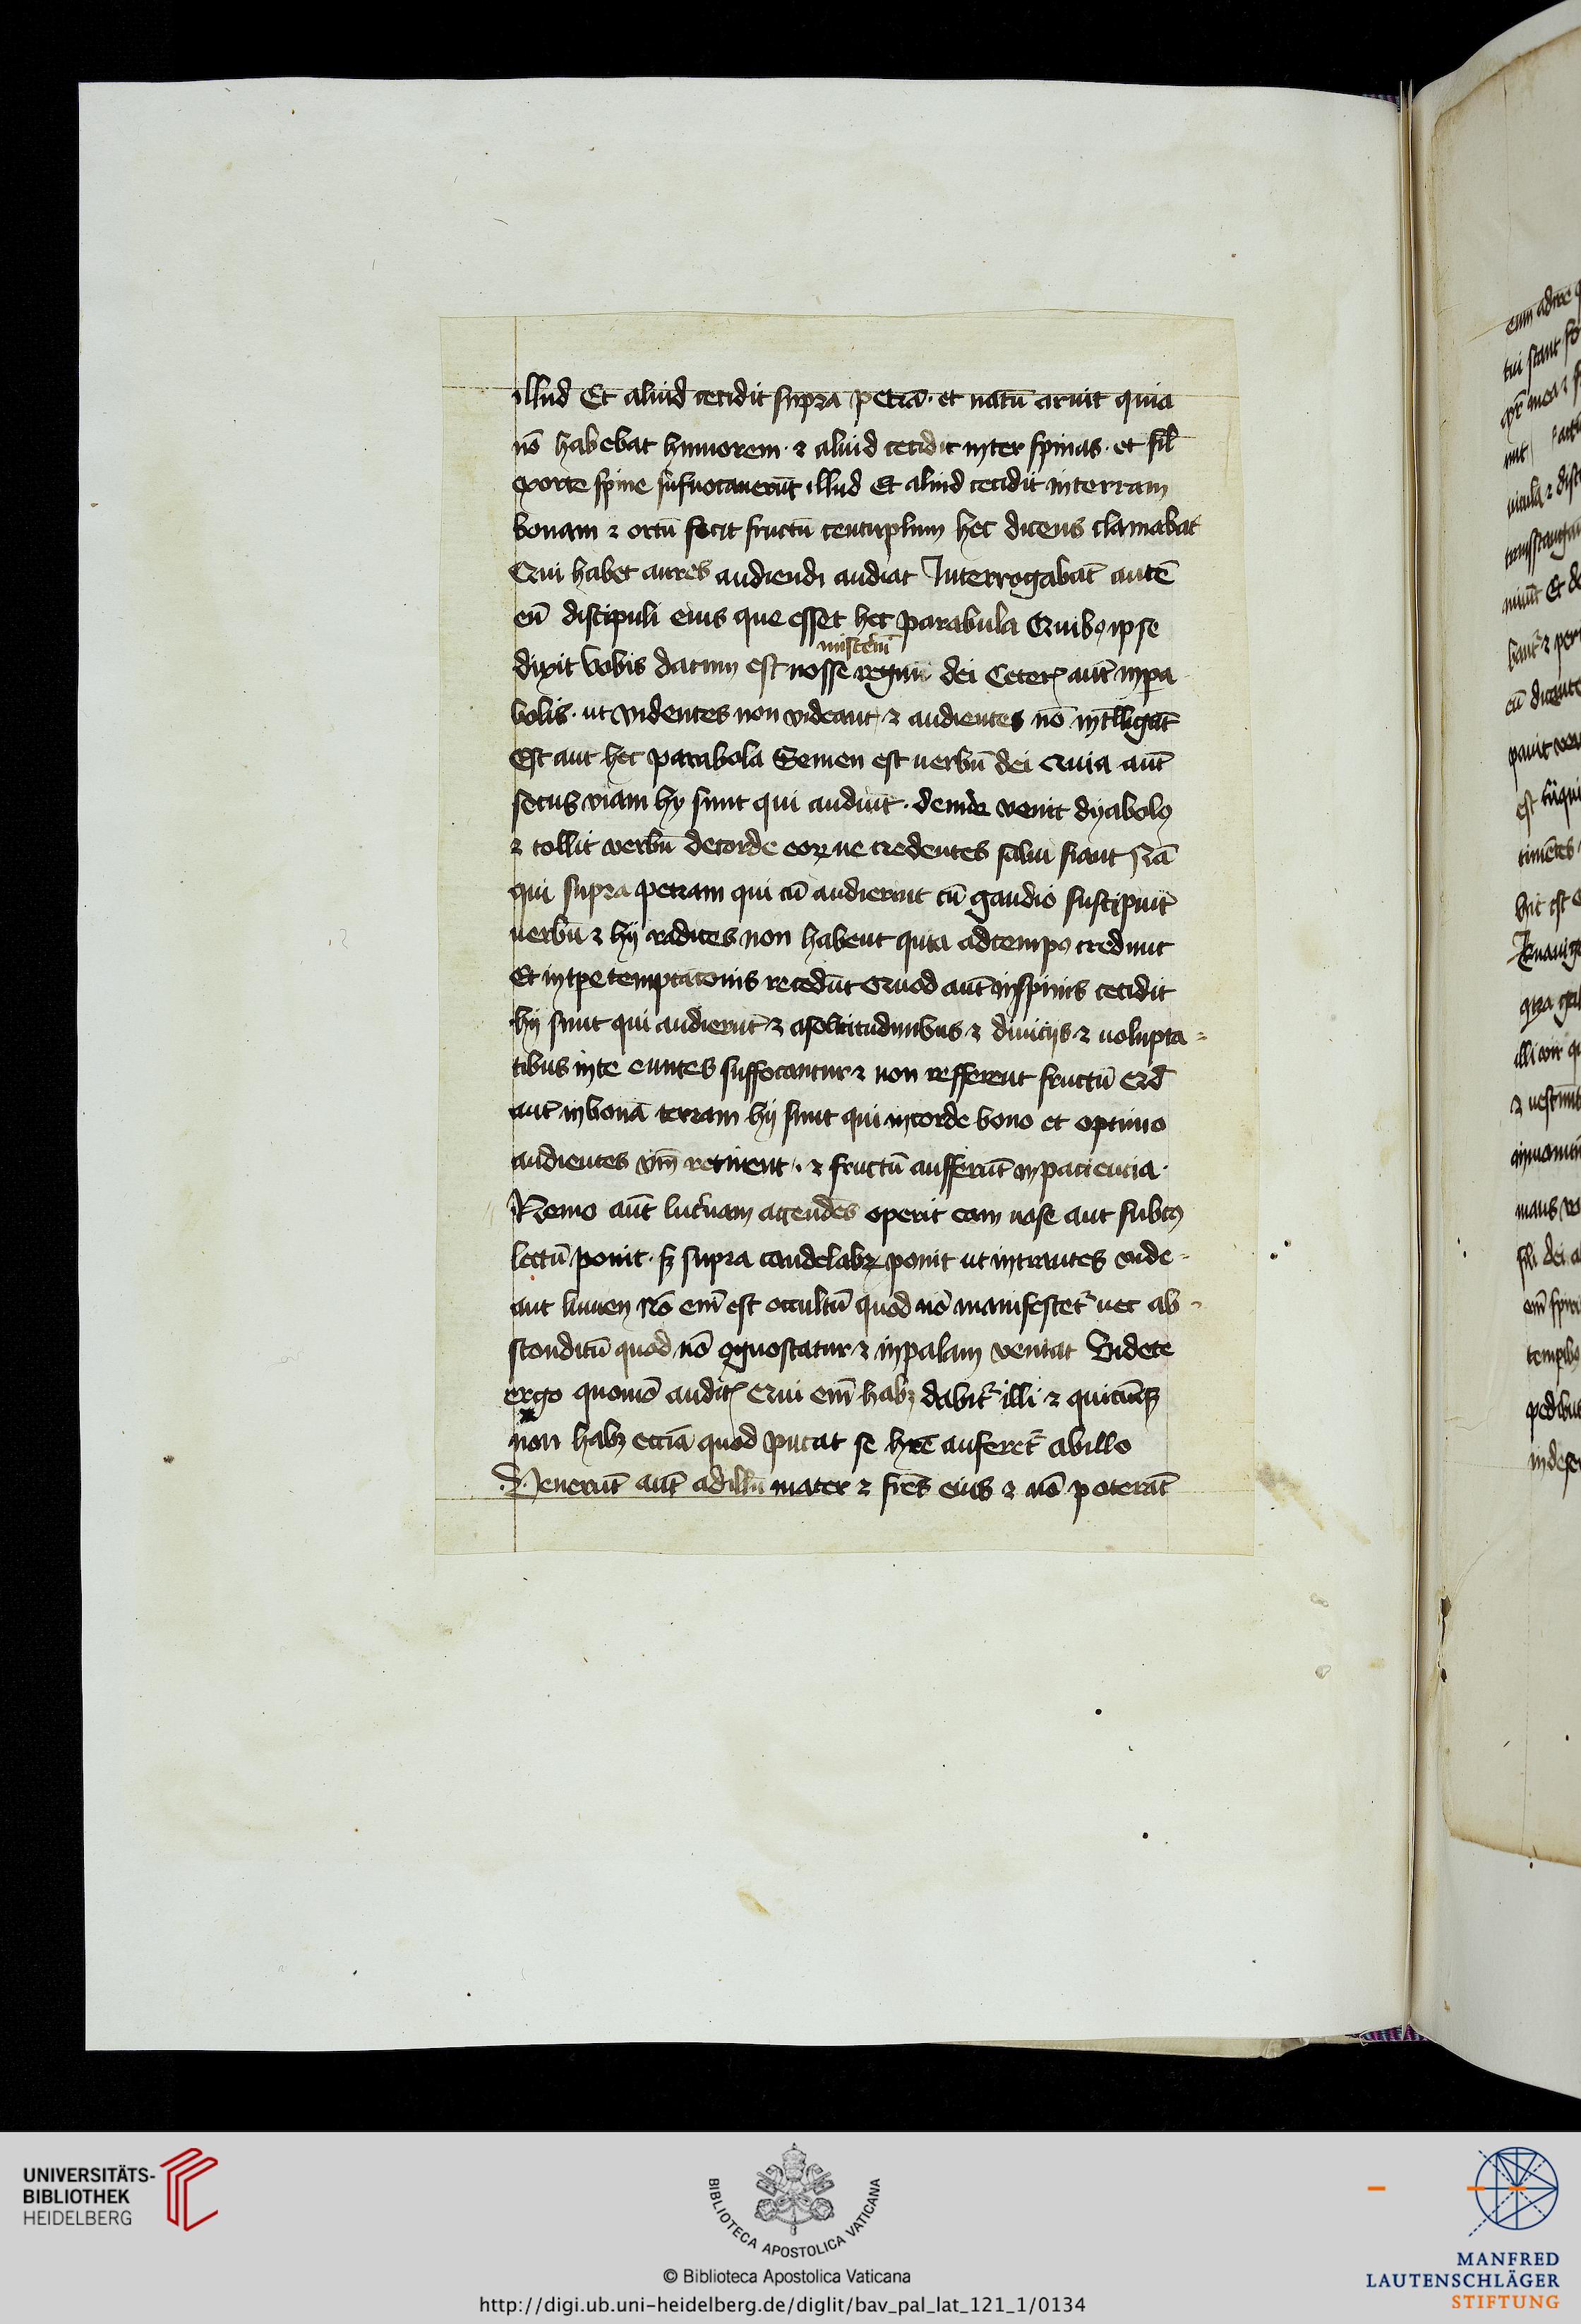 illud Et aliud cecidit supra petrā · et natū aruit quia
nō habebat humorem · ⁊ aliud cecidit inter spinas · et sil̄
exorte spine sufuocauerūt illud Et aliud cecidit interram
bonam ⁊ ortū fecit fructū centuplum hec dicens clamabat
Qui habet aures audiendi audiat Interrogabāt autē
eū discipuli eius que esset hec parabula Quibꝰ ipse
misteriū
dixit Vobis datum est nosse regnū dei Ceteris aūt inpa
bolis · ut videntes non videant ⁊ audientes nō intlligāt
Est aut hec parabola Semen est uerbū dei Quia aūt
secus viam hy sunt qui audiūt · deinde venit dyabolꝰ
⁊ tollit verbū decorde eoꝝ ne credentes salui fiant Nā
qui supra petram qui cū audierint cū gaudio suscipiūt
uerbū ⁊ hij radices non habent quia adtempꝰ credunt
Et intpe temptacōnis recedūt Quod aūt inspinis cecidit
hij sunt qui audierūt ⁊ asollicitudinibus ⁊ diuicijs ⁊ uolupta-
tibus uite euntes suffocantur ⁊ non refferent fructū Qd̄
aūt inbonā terram hij sunt qui incorde bono et optimo
audientes vm̄ retinent · ⁊ fructū aufferūt inpaciencia ·
Nemo aūt lucernam acendēs operit eam uase aut subtꝰ
lectū ponit · sꝫ supra candelabꝝ ponit ut intrantes vide-
ant lumen Nō em̄ est occultū quod nō manifestetur nec ab-
sconditū quod nō ꝯgnoscatur ⁊ inpalam veniat Videte
ergo quomō auditis Qui em̄ habꝫ dabitur illi ⁊ quicūqꝫ
non habꝫ eciā quod putat se hr̄e auferetur abillo
Venerūt aūt adillū mater ⁊ frēs eius ⁊ nō poterāt
UNIVERSITÄTS-
BIBLIOTHEK
HEIDELBERG
BIBLIOTECA APOSTOLICA VATICANA
© Biblioteca Apostolica Vaticana
http://digi.ub.uni-heidelberg.de/diglit/bav_pal_lat_121_1/0134
MANFRED
LAUTENSCHLÄGER
STIFTUNG